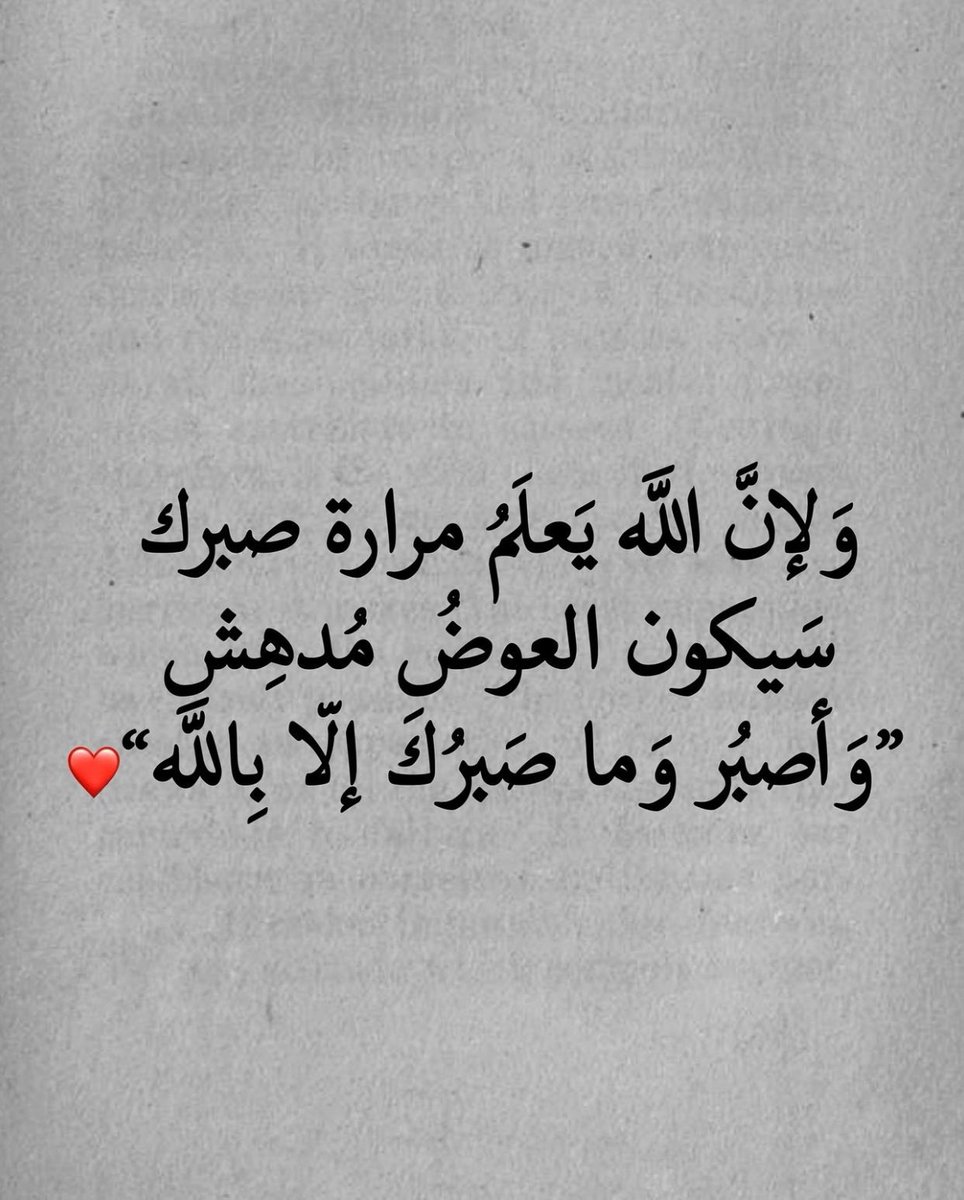 وَلإنَّ اللَّه يَعلَمُ مرارة صبرك
سَيكون العوضُ مُدهِش
”وَأصبُر وَما صَبرُكَ إلّا بِاللَّه“❤️